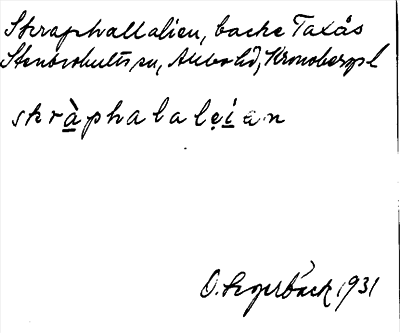 Skraphallalien, backe Taxås
Stenbrohults sn, Allbo hd, Kronobergs l
skràphalaleían
O. Segerbäck 1931